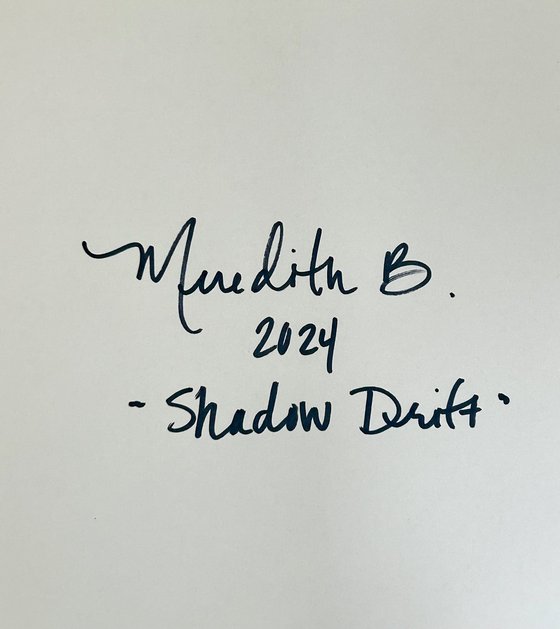 Meredith B.
2024
- Shadow Drift -